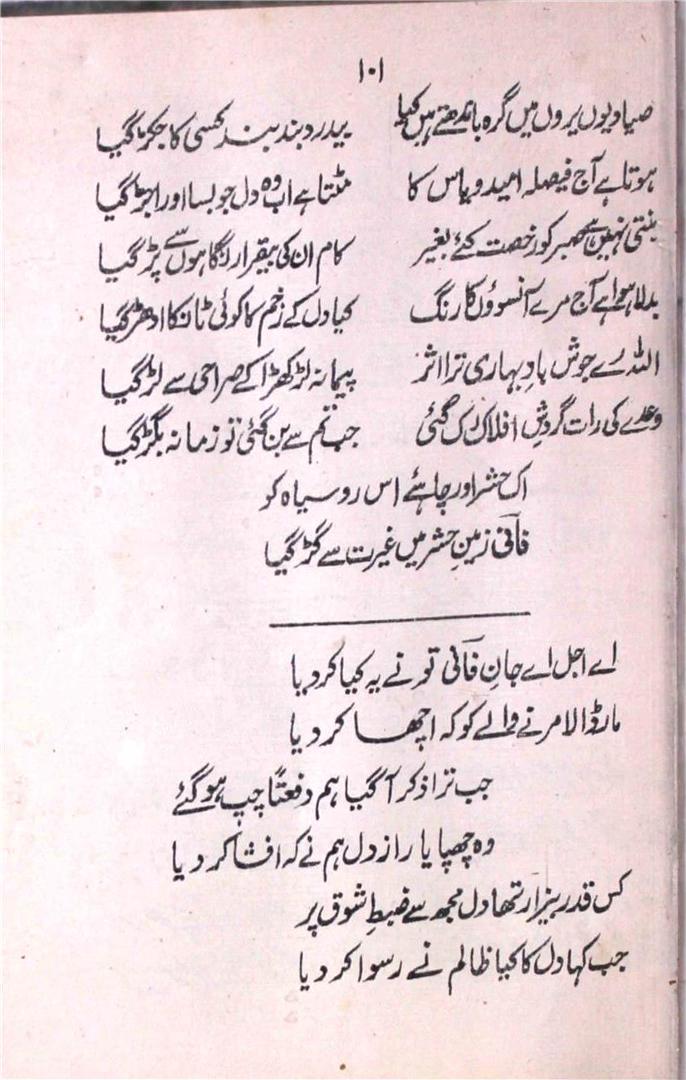 ۱۰۱
صیاد یوں پروں میں گرہ باندھتے ہیں کیا بیدرد بند بند کسی کا جکڑ گیا
ہوتا ہے آج فیصلہ امید و یاس کا مٹتا ہے اب وہ دل جو بسا اور اجڑ گیا
بنتی نہیں ہے صبر کو رخصت کئے بغیر کام ان کی بیقرار نگاہوں سے پڑ گیا
بدلا ہوا ہے آج مرے آنسوؤں کا رنگ کیا دل کے زخم کا کوئی ٹانکا ادھڑ گیا
اللہ رے جوش بادِ بہاری ترا اثر پیمانہ لڑکھڑا کے صراحی سے لڑ گیا
وعدے کی رات گردشِ افلاک رک گئی جب تم سے بن گئی تو زمانہ بگڑ گیا
اک حشر اور چاہئے اس روسیاہ کو
فانی زمینِ حشر میں غیرت سے گڑ گیا
اے اجل اے جانِ فانی تو نے یہ کیا کر دیا
مار ڈالا مرنے والے کو کہ اچھا کر دیا
جب ترا ذکر آگیا ہم دفعتاً چپ ہو گئے
وہ چھپایا راز دل ہم نے کہ افشا کر دیا
کس قدر بیزار تھا دل مجھ سے ضبطِ شوق پر
جب کہا دل کا کیا ظالم نے رسوا کر دیا